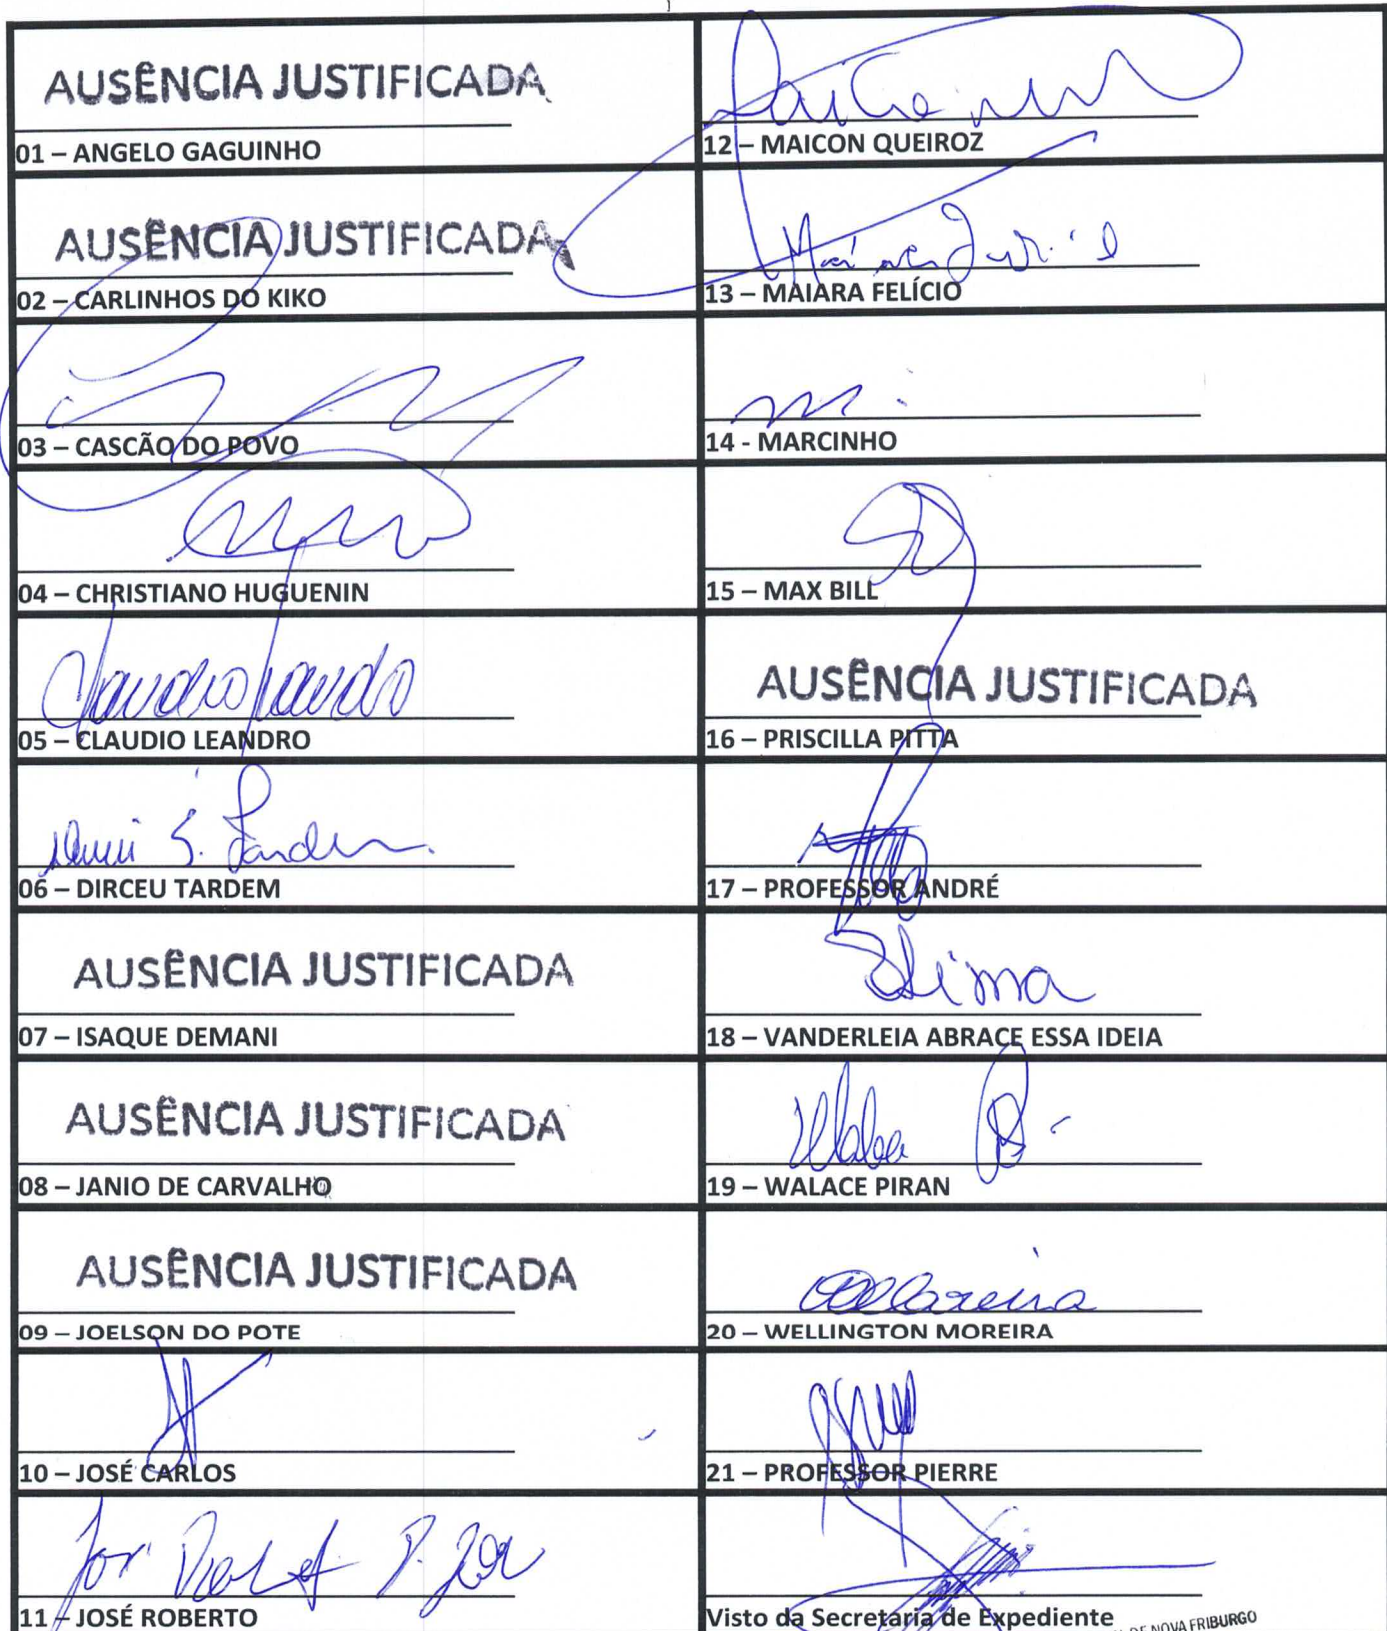 AUSÊNCIA JUSTIFICADA
01 – ANGELO GAGUINHO
AUSÊNCIA JUSTIFICADA
02 – CARLINHOS DO KIKO
03 – CASCÃO DO POVO
04 – CHRISTIANO HUGUENIN
05 – CLAUDIO LEANDRO
06 – DIRCEU TARDEM
AUSÊNCIA JUSTIFICADA
07 – ISAQUE DEMANI
AUSÊNCIA JUSTIFICADA
08 – JANIO DE CARVALHO
AUSÊNCIA JUSTIFICADA
09 – JOELSON DO POTE
10 – JOSÉ CARLOS
11 – JOSÉ ROBERTO
12 – MAICON QUEIROZ
13 – MAIARA FELÍCIO
14 - MARCINHO
15 – MAX BILL
AUSÊNCIA JUSTIFICADA
16 – PRISCILLA PITTA
17 – PROFESSOR ANDRÉ
18 – VANDERLEIA ABRACE ESSA IDEIA
19 – WALACE PIRAN
20 – WELLINGTON MOREIRA
21 – PROFESSOR PIERRE
Visto da Secretaria de Expediente
DE NOVA FRIBURGO